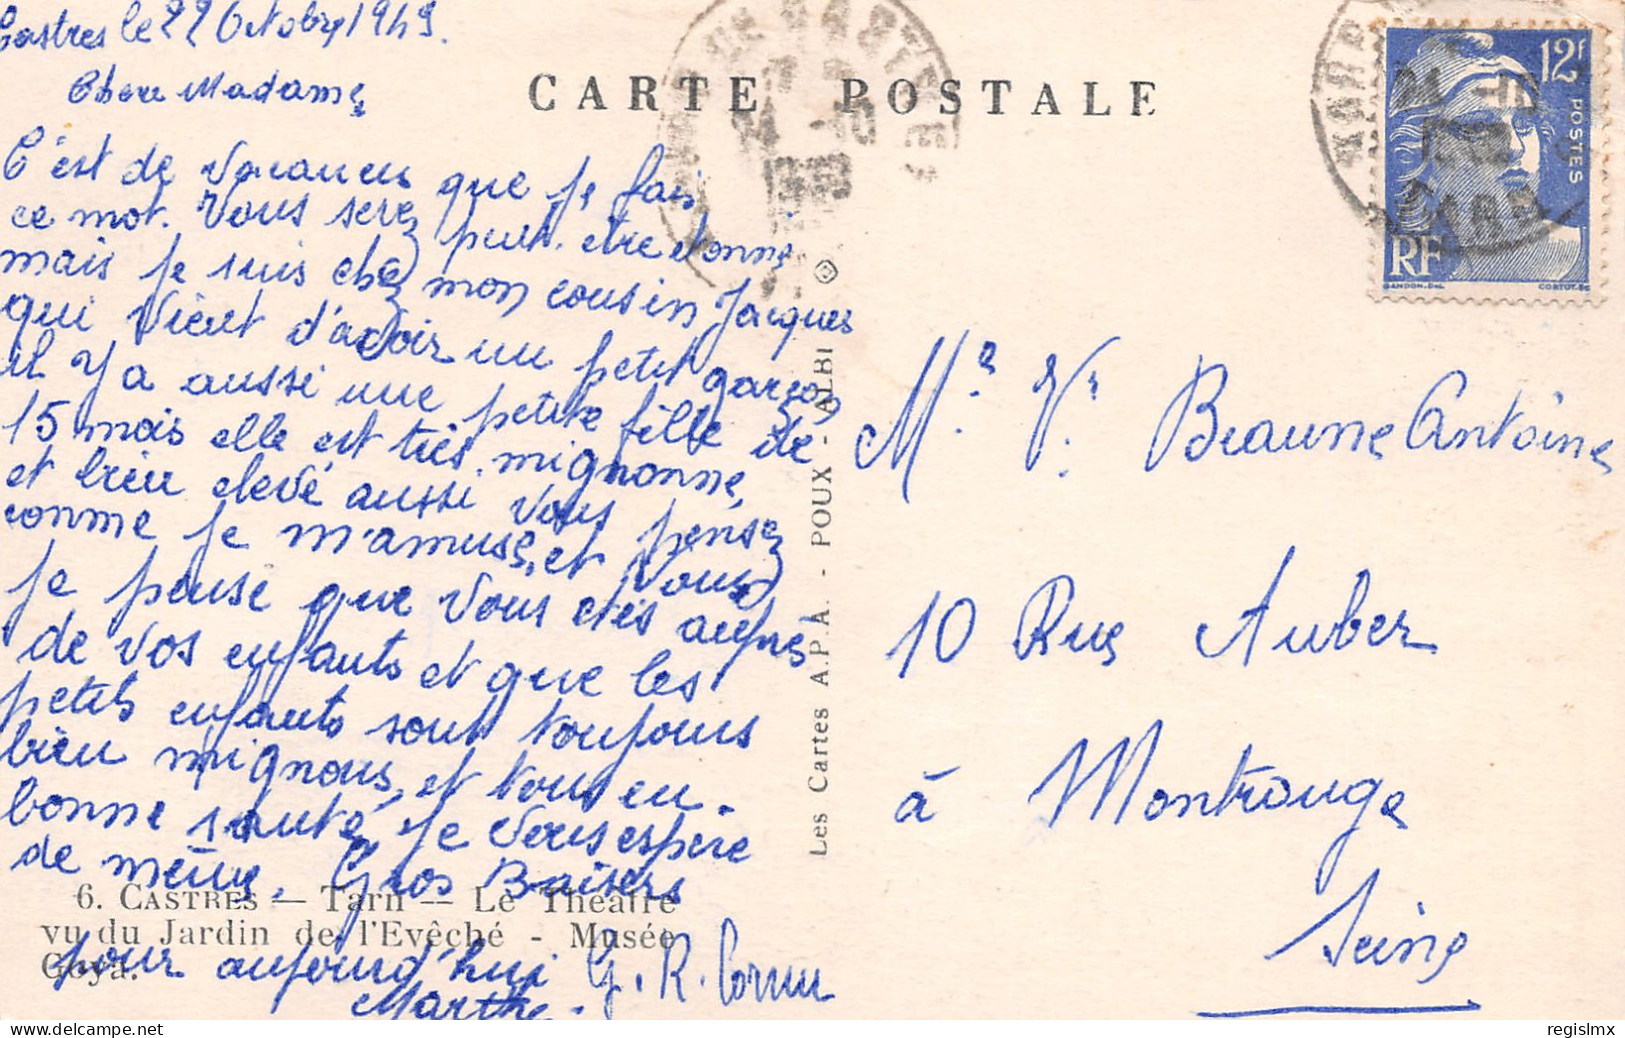 Castres le 22 Octobre 1949.
Chere Madame
CARTE POSTALE
C'est de vacances que je fais
ce mot. Vous serez peut-etre etonne
mais je suis chez mon cousin Jacques
qui vient d'avoir un petit garçon
il y a aussi une petite fille de
15 mois elle est très mignonne,
et bien elevé aussi vous pensez
comme je m'amuse, et vous
je pense que vous etes auprès
de vos enfants et que les
petits enfants sont toujours
bien mignons, et tous en
bonne santé, je vous espère
de même. Gros Baisers
pour aujourd'hui G. R. Cornu
Marthe.
6. CASTRES — Tarn — Le Théâtre
vu du Jardin de l'Evêché - Musée
Goya.
Les Cartes A.P.A. - POUX - ALBI
12F
POSTES
RF
GANDON-DEL
CORTOT-SC
TARN
Mme Ve Beaune Antoine
10 Rue Auber
à Montrouge
Seine
delcampe.net
regislmx